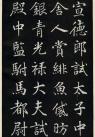 宣德郎試太子中
舍人賞緋魚袋
銀青光禄大夫試
殿中監駙馬都尉